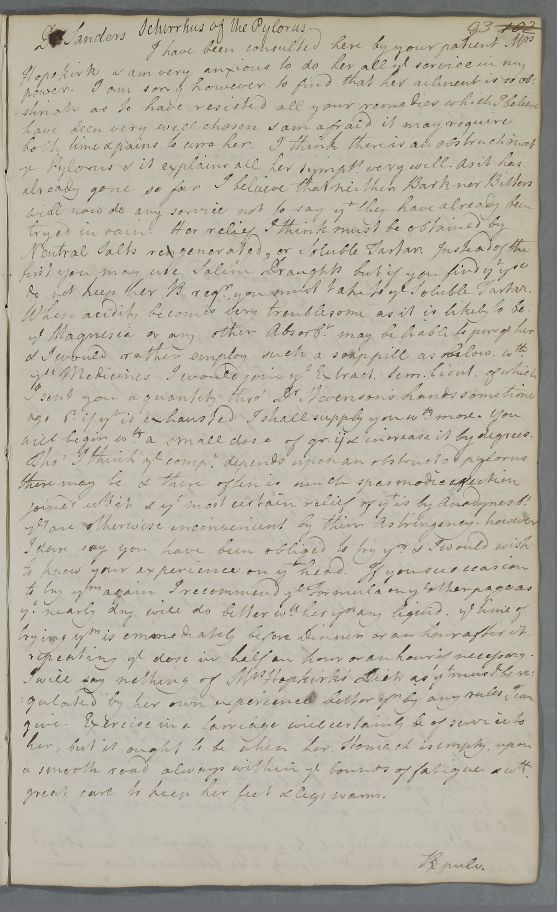 93 102
Dr Sanders Schirrhus of the Pylorus
I have been consulted here by your patient Mrs
Hopskirk & am very anxious to do her all ye service in my
power. I am sorry however to find that her ailment is so ob=
=stinate as to have resisted all your remedies which I believe
have been very well chosen & am afraid it may require
both time & pains to cure her. I think there is an obstruction at
ye Pylorus & it explains all her sympts very well. As it has
already gone so far I believe that neither Bark nor Bitters
will now do any service not to say yt they have already been
tryed in vain. Her relief I think must be obtained by
Neutral Salts regenerated, or Soluble Tartar. Instead of the
first you may use Saline Draughts but if you find yt you
do not keep her B. regr. you must take to ye Soluble Tartar.
When acidity becomes very troublesome as it is likely to be
ye Magnesia or any other Absorbt. may be liable to purge her
& I would rather employ such a soap pill as below. wth
ys Medicines I would join ye Extract. Sem. Cicut. of which
I sent you a quantity thro' Dr Stevenson's hands sometime
ago & if yt is exhausted I shall supply you wth more. You
will begin wth a small dose of gr. ij & increase it by degrees.
Tho' I think ye compt. depends upon an obstructed pylorus
there may be & there often is such spasmodic affection
joined wth it & ye most certain relief of yt is by Anodynes bt
yse are otherwise inconvenient by their Astringency. however
I dare say you have been obliged to try ym & I would wish
to know your experience on yt head. If you see occasion
to try ym again I recommend ye Formula on ye other page as
ye nearly dry will do better wth her yn any liquid. ye time of
trying ym is immediately before Dinner or an hour after it.
repeating ye dose in half an hour or an hour if necessary.
I will say nothing of Mrs Hopkirk's Diet as yt must be re=
gulated by her own experience better yn by any rules I can
give. Exercise in a Carriage will certainly be of service to
her, but it ought to be when her Stomach is empty, upon
a smooth road always within ye bounds of fatigue & wth
great care to keep her feet & legs warm.
℞ pulv.